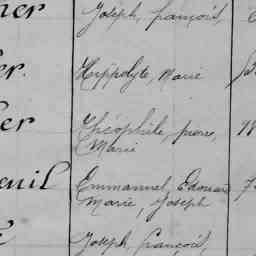 ner Joseph, françois,
er. Hippolyte, Marie
er Théophile, pierre,
Marie
euil Emmanuel, Edouard
Marie, Joseph
Joseph, françois,